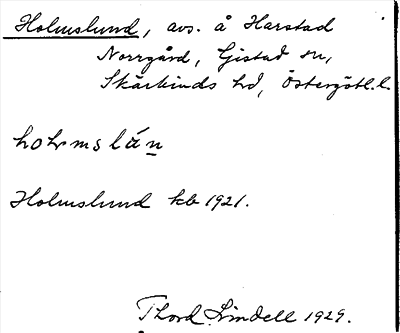 Holmslund, avs. å Harstad
Norrgård, Gistad sn,
Skärkinds hd, Östergötl. l.
holmslán
Holmslund kb 1921.
Thord Lindell 1929.